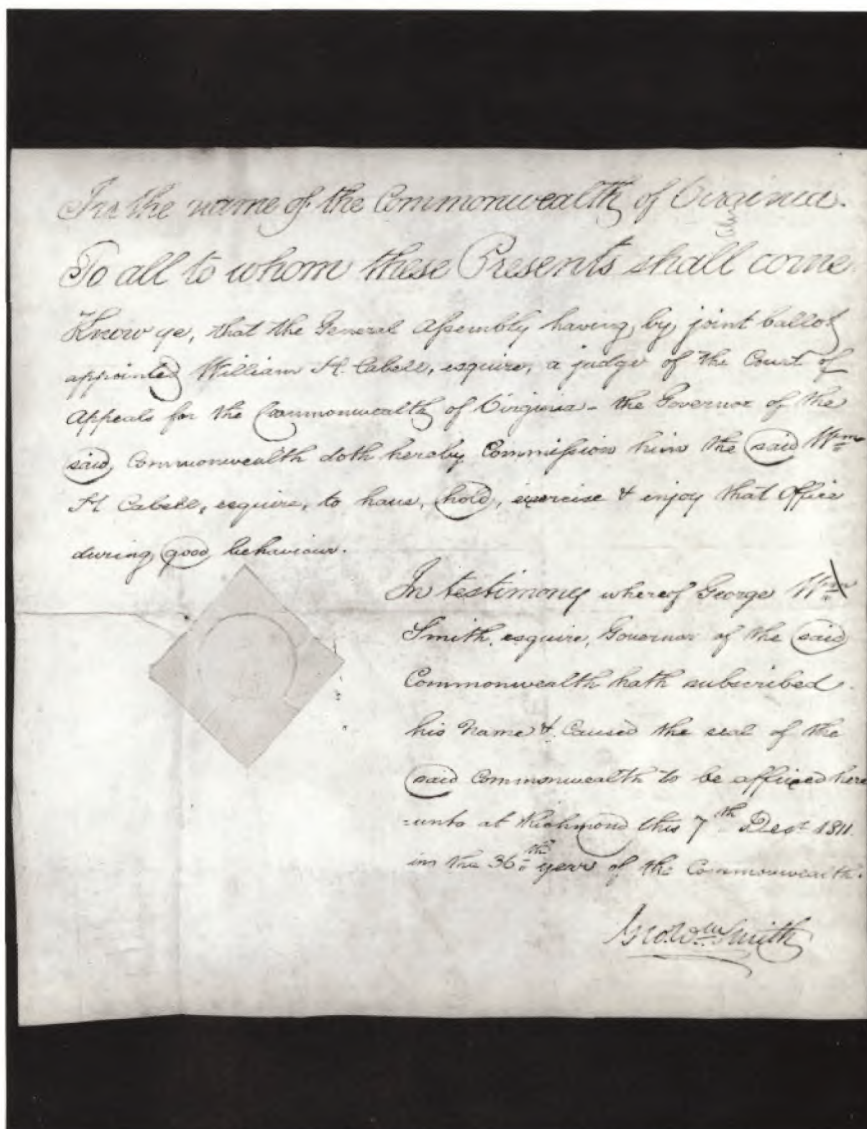 In the name of the Commonwealth of Virginia.
To all to whom these Presents shall come
Know ye, that the General Assembly having, by joint ballot
appointed William H. Cabell, esquire, a judge of the Court of
Appeals for the Commonwealth of Virginia - the Governor of the
said, Commonwealth doth hereby Commission him the said Wm
H Cabell, esquire, to have, hold, exercise & enjoy that Office
during good behaviour.
In testimony whereof George Wm
Smith, esquire, Governor of the said
Commonwealth hath subscribed
his Name & Caused the seal of the
said Commonwealth to be affixed here
=unto at Richmond this 7th Decr 1811.
in the 36th year of the Commonwealth.
Geo. Wm Smith